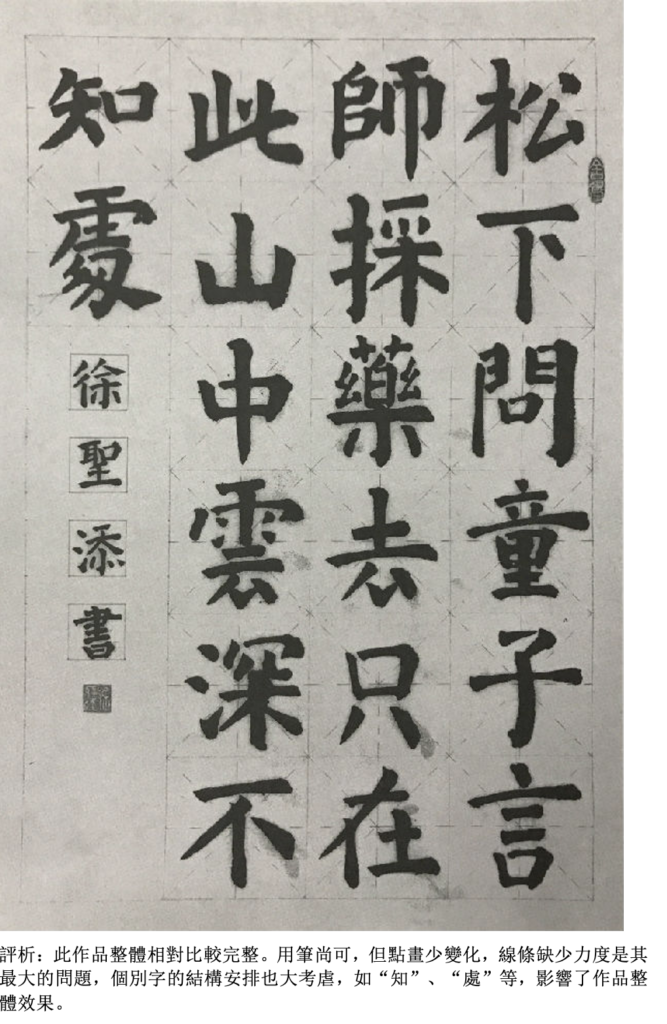 松下問童子言
師採藥去只在
此山中雲深不
知處
徐聖添書
評析：此作品整體相對比較完整。用筆尚可，但點畫少變化，線條缺少力度是其
最大的問題，個別字的結構安排也大考虐，如“知”、“處”等，影響了作品整
體效果。